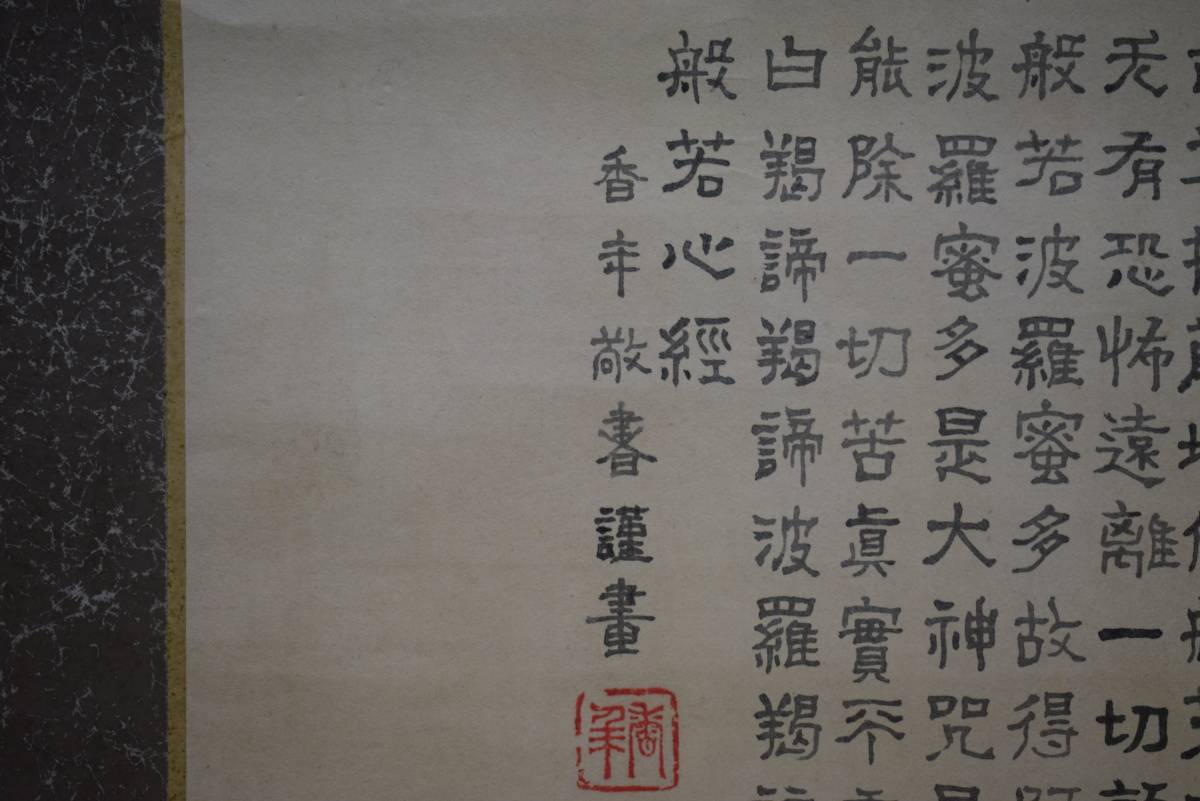 无有恐怖遠離一切
般若波羅蜜多故得
波羅蜜多是大神咒
能除一切苦眞實不
白羯諦羯諦波羅羯
般若心經
香年敬書謹畫
香年